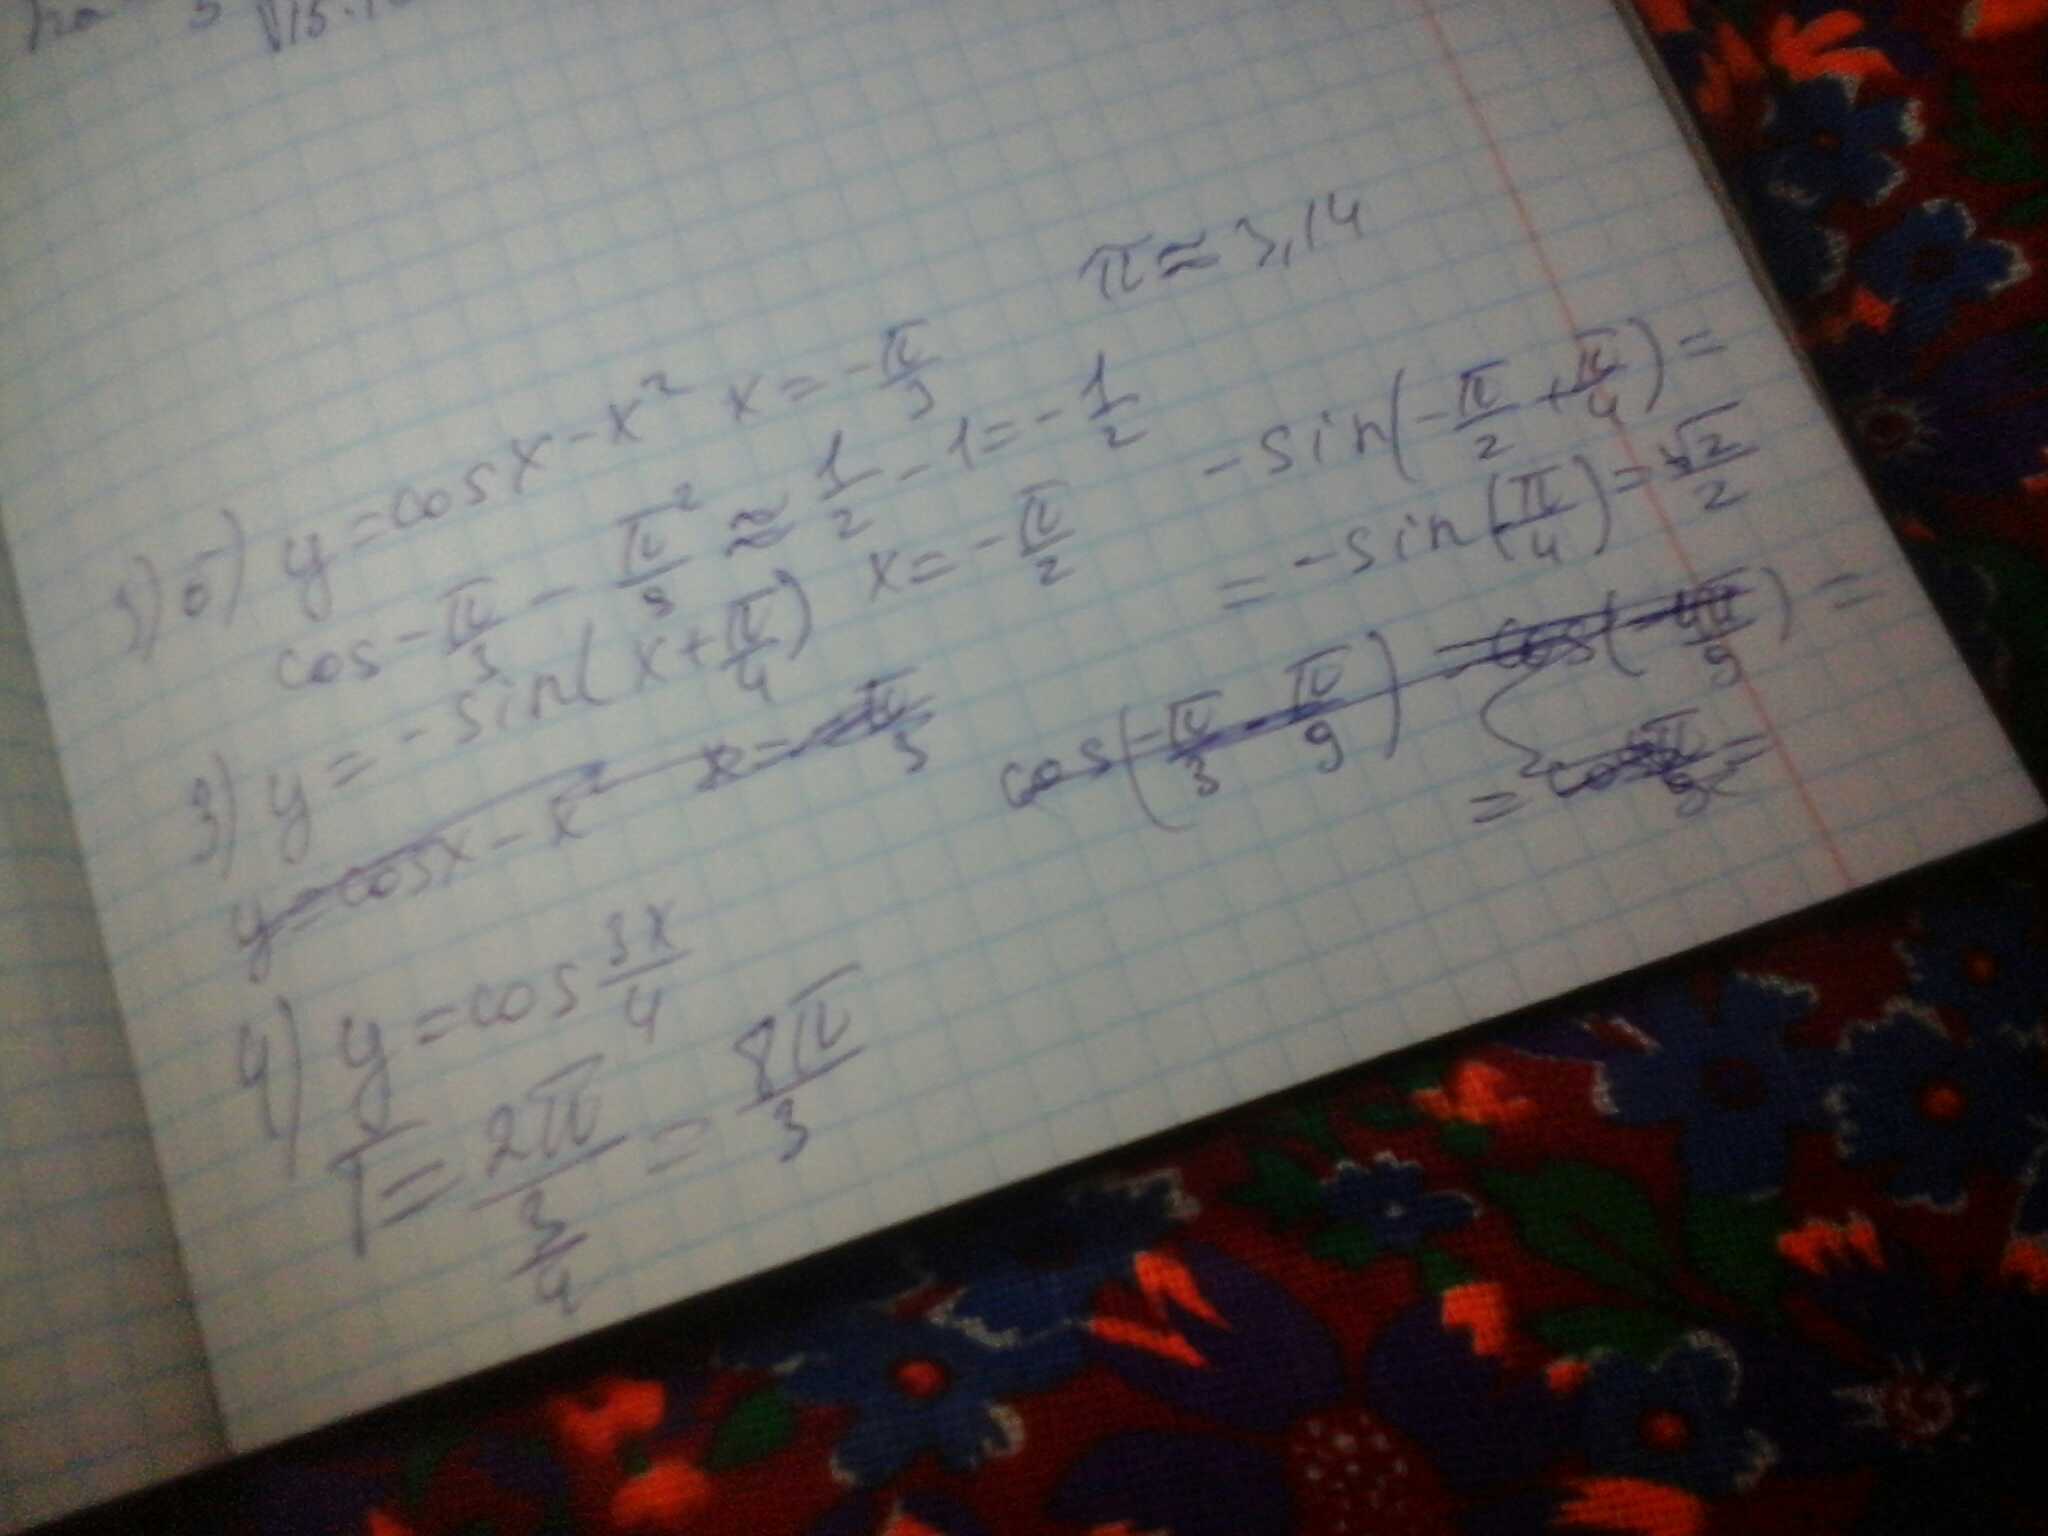 π ≈ 3,14
1) б) y = cos x − x² x = −π/3
cos −π/3 − π²/9 ≈ 1/2 − 1 = −1/2
3) y = −sin(x + π/4) x = −π/2 −sin(−π/2 + π/4) =
= −sin(π/4) = √2/2
y = cos x − x² x = −π/3 cos(−π/3 − π/9) = cos(−4π/9) =
4) y = cos 3x/4
T = 2π/(3/4) = 8π/3